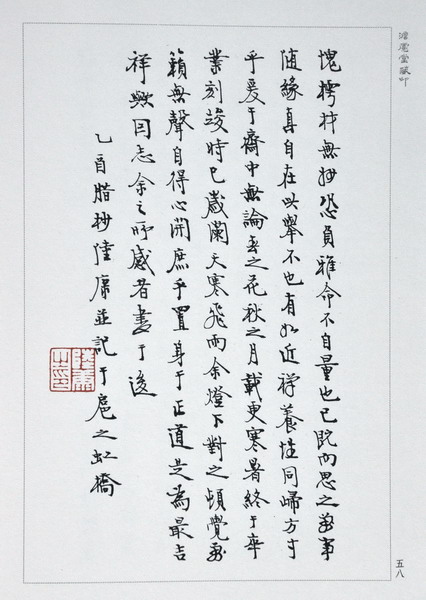 愧樗材無妙恐負雅命不自量也已既而思之萬事
随緣真自在此舉不也有如近禅養性同歸方寸
乎爰于齋中無論春之花秋之月載更寒暑終于卒
業刻竣時已歲闌天寒飛雨余燈下對之頓覺萬
籟無聲自得心開庶乎置身于正道是為最吉
祥與同志余之所感者書于後
乙酉腊杪陸康並記于扈之虹橋
陸康之印
五八